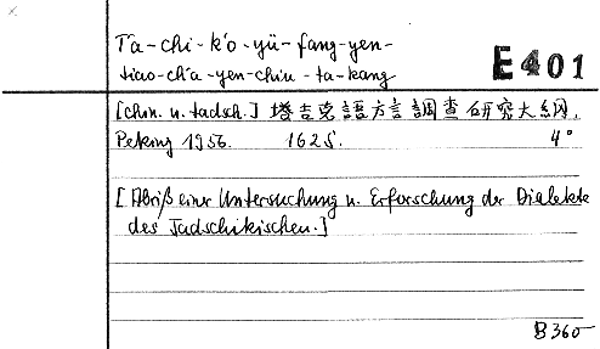 T'a-chi-k'o-yü-fang-yen-
tiao-ch'a-yen-chiu-ta-kang
E401
[chin. u. tadsch.] 塔吉克語方言調查研究大綱.
Peking 1956. 162 S. 4°
[Abriß einer Untersuchung u. Erforschung der Dialekte
des Tadschikischen.]
B 360